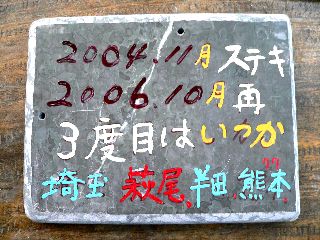 2004.11月ステキ
2006.10月再
3度目はいつか
埼玉 萩尾、半田、熊本